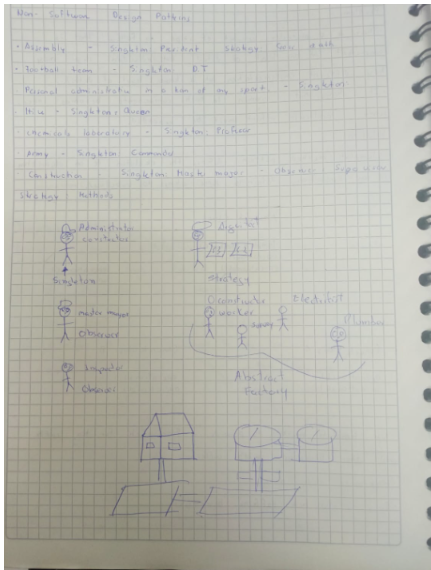 Non-Software Design Patterns
- Assembly - Singleton President Strategy
- Football team - Singleton DT
Personal administrator in a box of my sport - Singleton
- Hive - Singleton, Queen
- chemicals laboratory - Singleton, Professor
Army - Singleton Commando
- Construction - Singleton Master mayor - Observer Supervisor
Strategy Methods
Administrator
construction
Singleton
Arquitect
Strategy
master mayor
Observer
constructor
worker
Electricist
Observer
Abstract
Factory